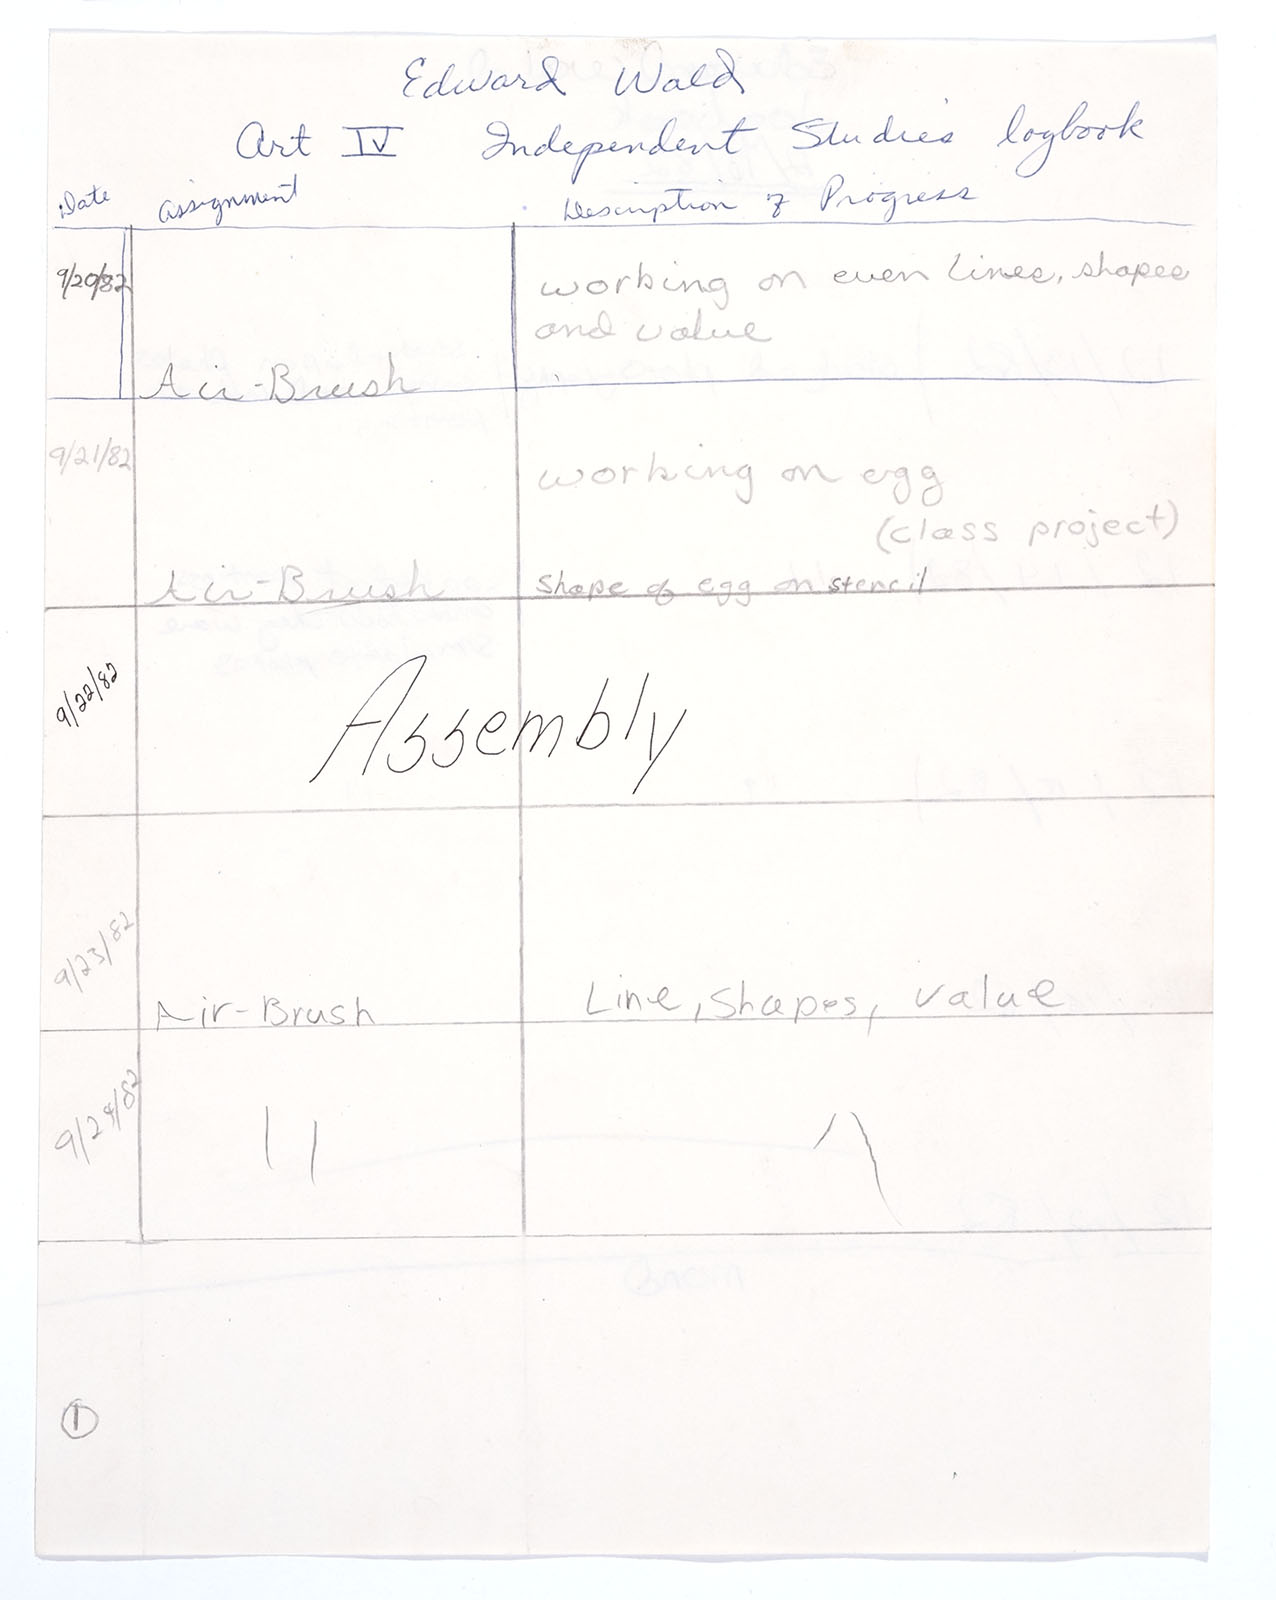 Edward Wald
Art IV Independent Studies logbook
Date assignment Description of Progress
9/20/82 working on even lines, shapes
and value
Air-Brush
9/21/82 working on egg
(class project)
Air-Brush Shape of egg on stencil
9/22/82 Assembly
9/23/82
Air-Brush Line, Shapes, value
9/24/82 11
1